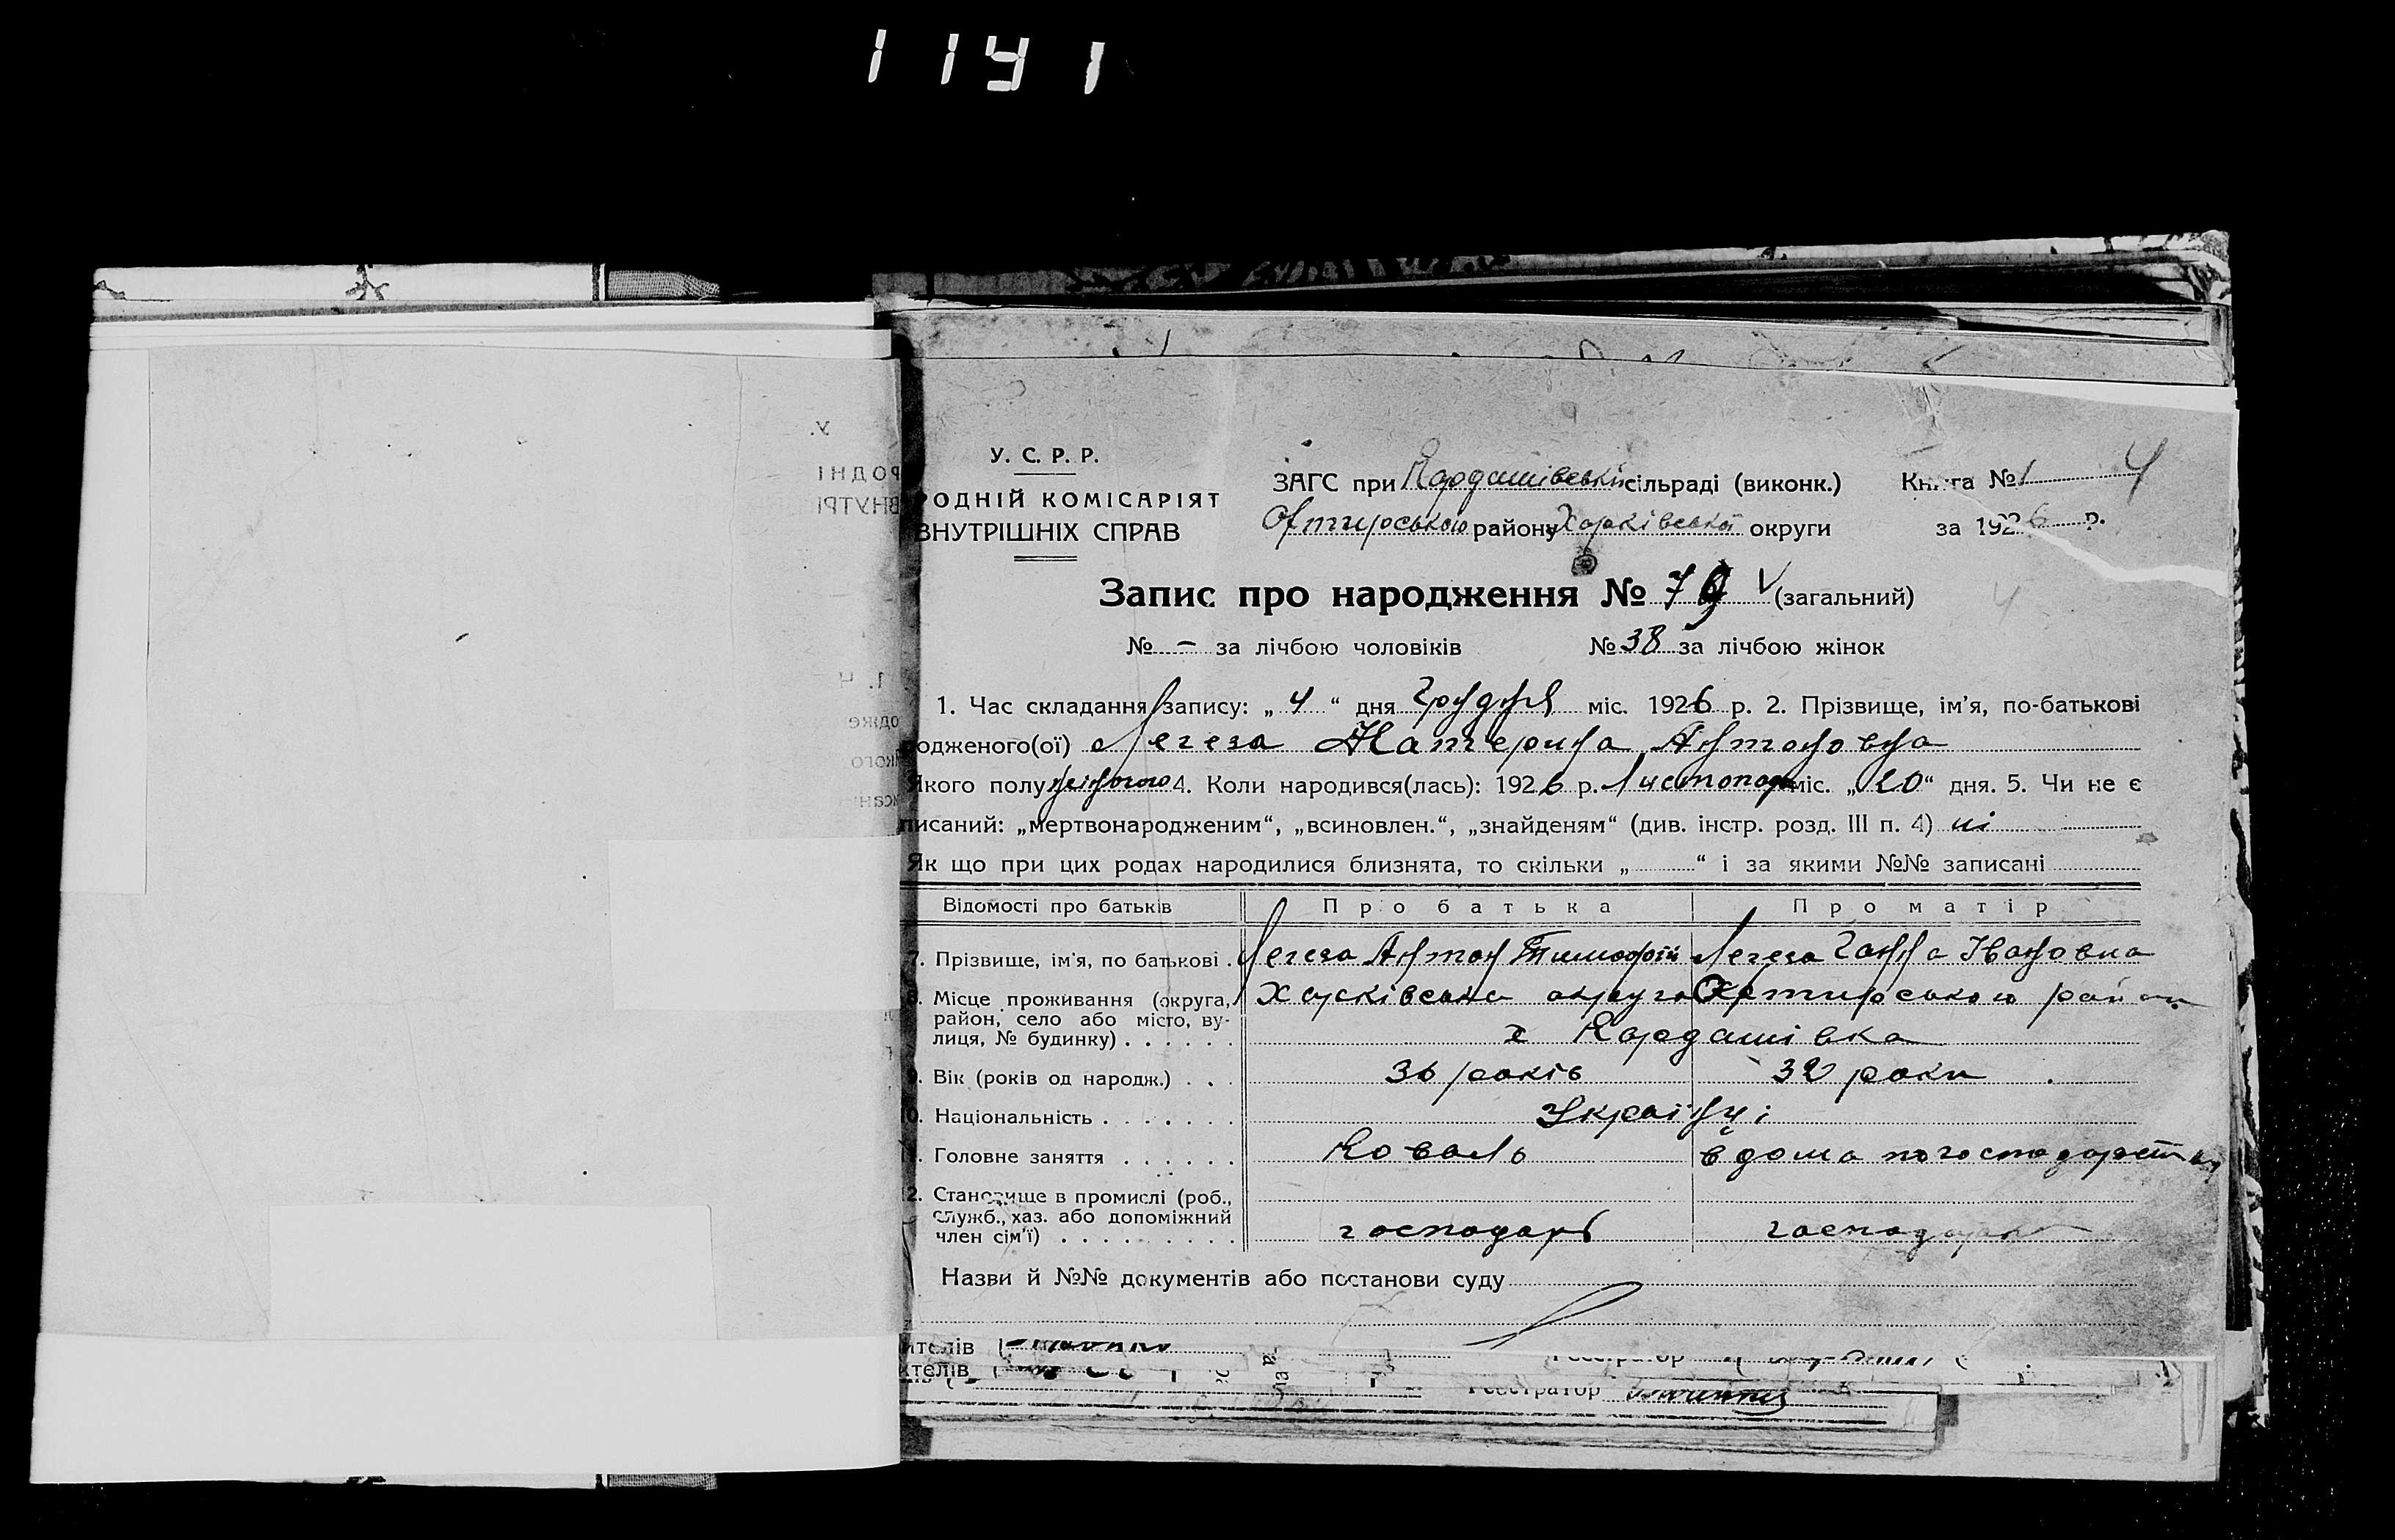 1141
У. С. Р. Р.
РОДНІЙ КОМІСАРІЯТ
ВНУТРІШНІХ СПРАВ
ЗАГС при Кардашівській сільраді (виконк.) Книга № 1 4
Охтирського району Харківської округи за 1926 р.
Запис про народження № 79 V (загальний)
4
№ – за лічбою чоловіків № 38 за лічбою жінок
1. Час складання запису: „ 4 “ дня Грудня міс. 1926 р. 2. Прізвище, ім'я, по-батькові
родженого(ої) Легеза Катерина Антоновна
Якого полу жіночого 4. Коли народився(лась): 1926 р. Листопада міс. „ 20 “ дня. 5. Чи не є
писаний: „мертвонародженим“, „всиновлен.“, „знайденям“ (див. інстр. розд. III п. 4) ні
Як що при цих родах народилися близнята, то скільки „ “ і за якими №№ записані
Відомості про батьків Про батька Про матір
7. Прізвище, ім'я, по батькові . Легеза Антон Тимофій Легеза Ганна Івановна
Місце проживання (округа, район, село або місто, вулиця, № будинку) . . . . . . Харківська округа Охтирського район
х Кардашівка
Вік (років од народж.) . . . 36 років 32 роки
0. Національність . . . . . . . Українці
Головне заняття . . . . . . Коваль вдома по господарству
2. Становище в промислі (роб.,
служб., хаз. або допоміжний
член сім'ї) . . . . . . . . . господарь господар
Назви й №№ документів або постанови суду
ителів
ктелів
Реєстратор
Реєстратор